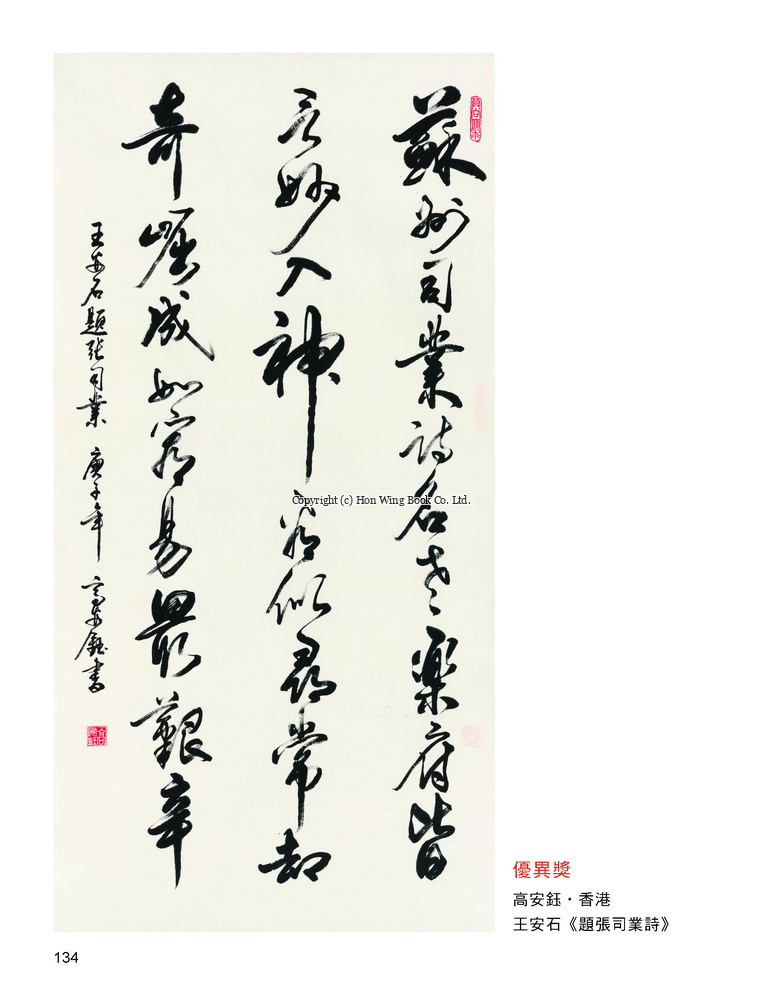 蘇州司業詩名老樂府皆
言妙入神看似尋常却
奇崛成如容易最艱辛
王安石題張司業 庚子年 高安鈺書
Copyright (c) Hon Wing Book Co. Ltd.
優異獎
高安鈺・香港
王安石《題張司業詩》
134